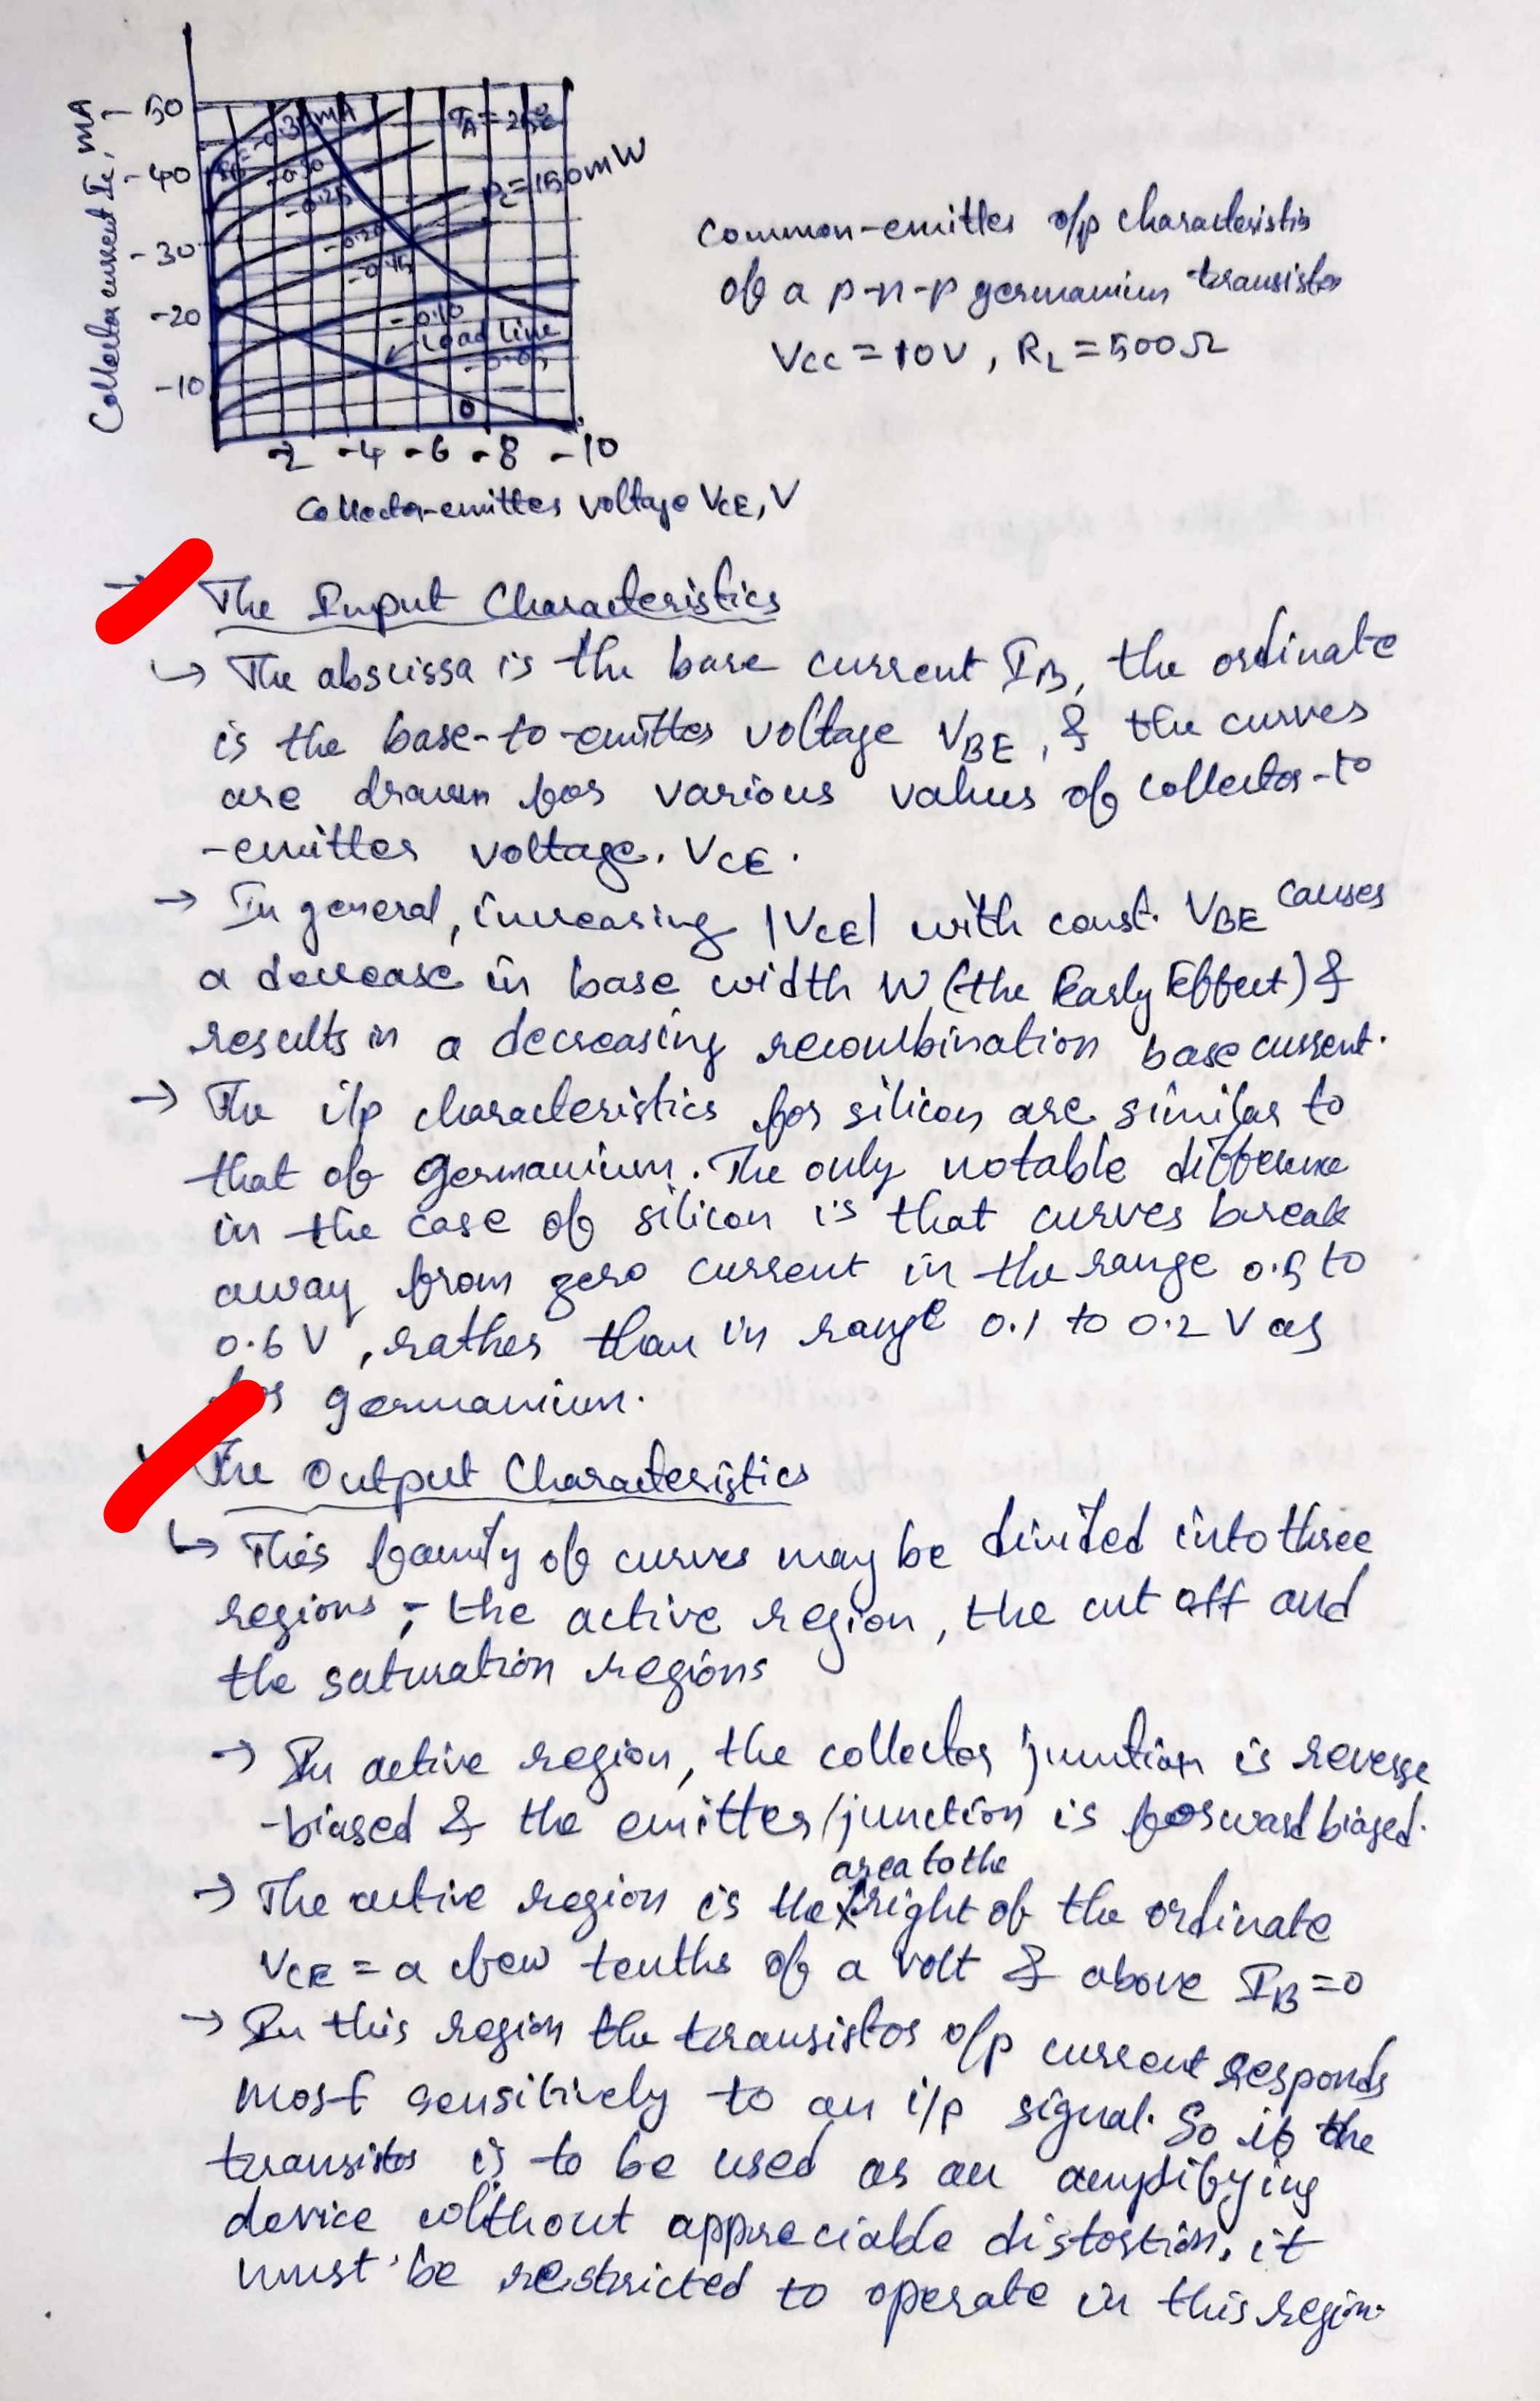 Collector current Ic, mA
-50
-40
-30
-20
-10
-0.30
-0.25
-0.20
-0.15
-0.10
Load line
-0.05
0
TA = 25°C
Pc = 150mW
-2 -4 -6 -8 -10
Collector-emitter voltage VCE, V
Common-emitter o/p characteristics
of a p-n-p germanium transistor
Vcc = 10V, RL = 500Ω
The Input Characteristics
↳ The abscissa is the base current IB, the ordinate
is the base-to-emitter voltage VBE, & the curves
are drawn for various values of collector-to
-emitter voltage. VCE.
→ In general, increasing |VCE| with const. VBE causes
a decrease in base width W (the Early Effect) &
results in a decreasing recombination base current.
→ The i/p characteristics for silicon are similar to
that of germanium. The only notable difference
in the case of silicon is that curves break
away from zero current in the range 0.5 to
0.6 V, rather than in range 0.1 to 0.2 V as
for germanium.
The Output Characteristics
↳ This family of curves may be divided into three
regions ; the active region, the cut off and
the saturation regions
→ In active region, the collector junction is reverse
-biased & the emitter junction is forward biased.
→ The active region is the area to the right of the ordinate
VCE = a few tenths of a volt & above IB = 0
→ In this region the transistor o/p current responds
most sensitively to an i/p signal. So if the
transistor is to be used as an amplifying
device without appreciable distortion, it
must be restricted to operate in this region.